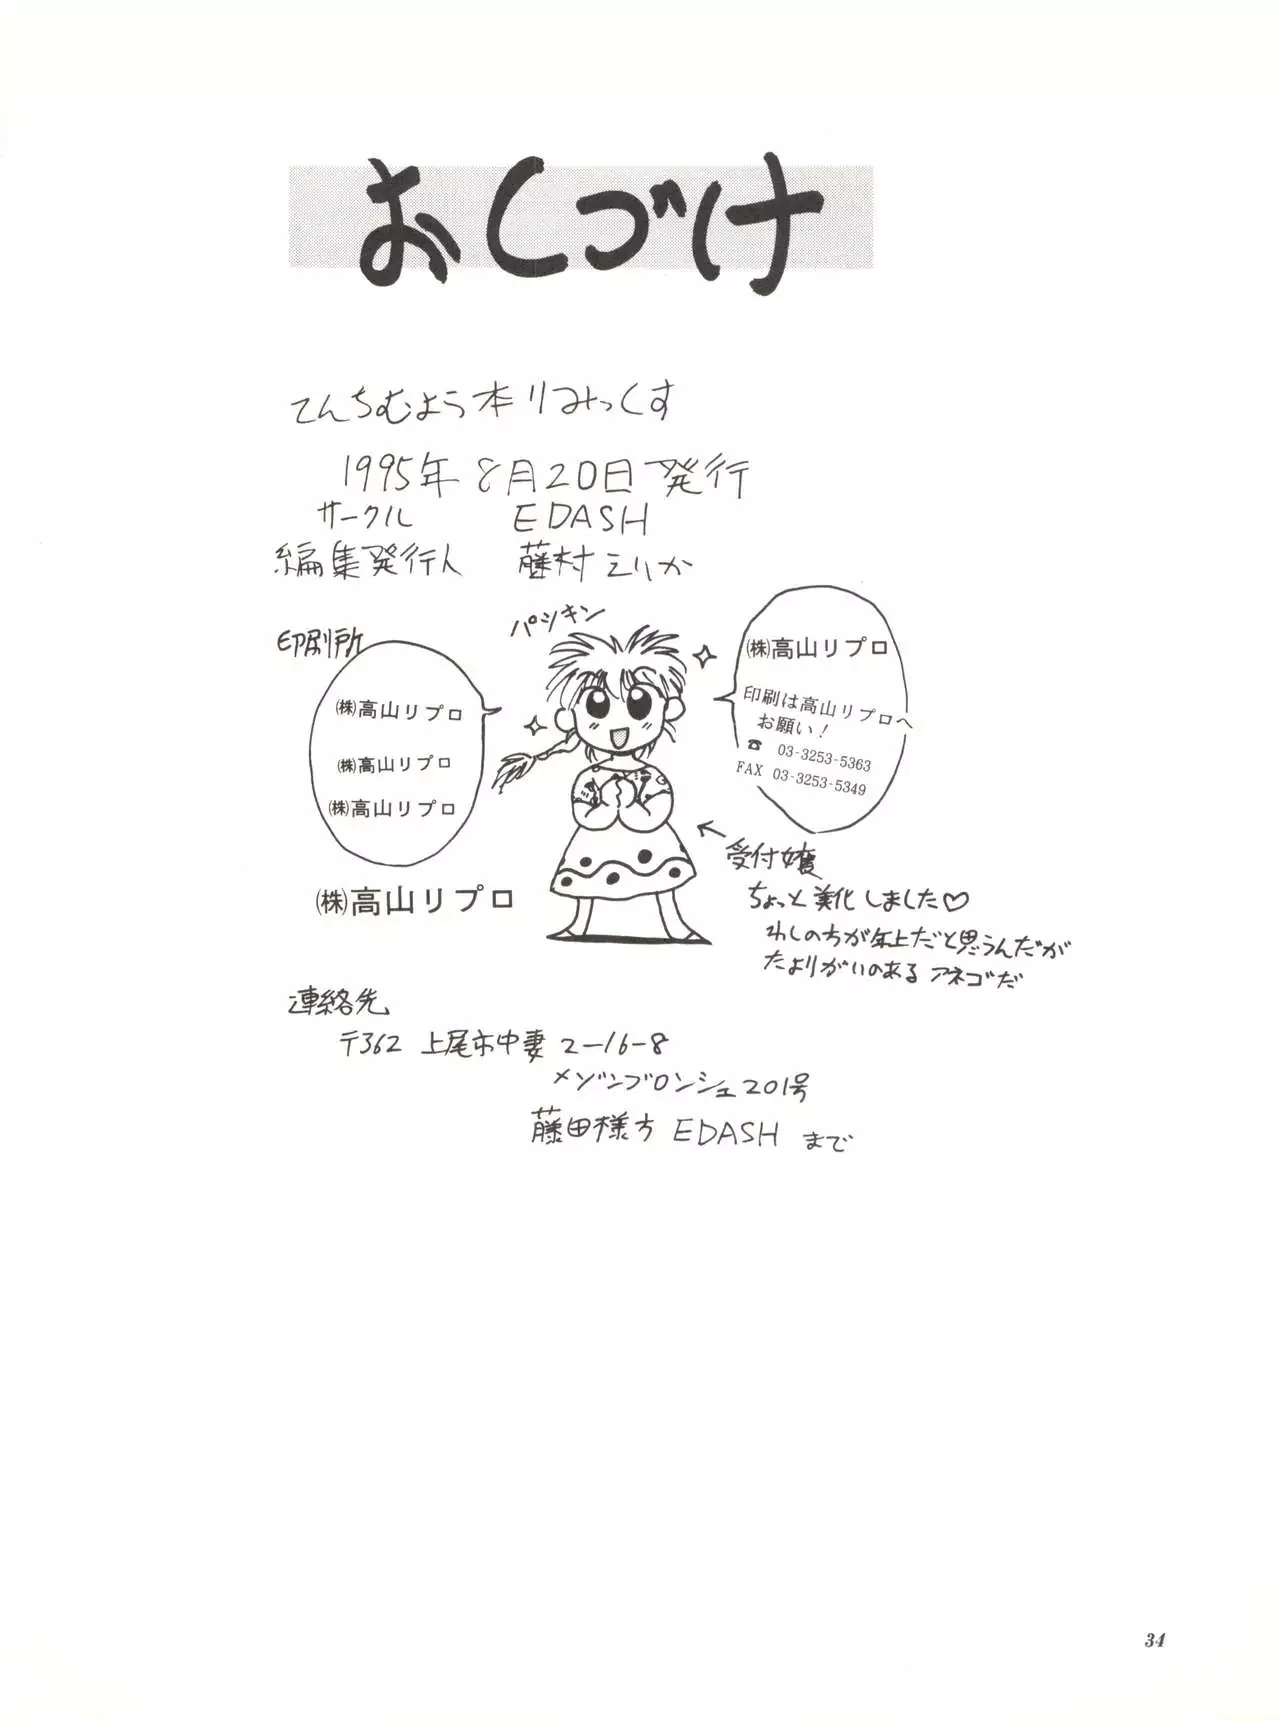 おくづけ
てんちむよう本りみっくす
1995年8月20日発行
サークル EDASH
編集発行人 藤村えりか
印刷所
㈱高山リプロ
㈱高山リプロ
㈱高山リプロ
㈱高山リプロ
パツキン
㈱高山リプロ
印刷は高山リプロへ
お願い!
☎ 03-3253-5363
FAX 03-3253-5349
← 受付嬢
ちょっと美化しました♡
わしの方が年上だと思うんだが
たよりがいのあるアネゴだ
連絡先
〒362 上尾市中妻2-16-8
メゾンブロンシェ201号
藤田様方 EDASH まで
34